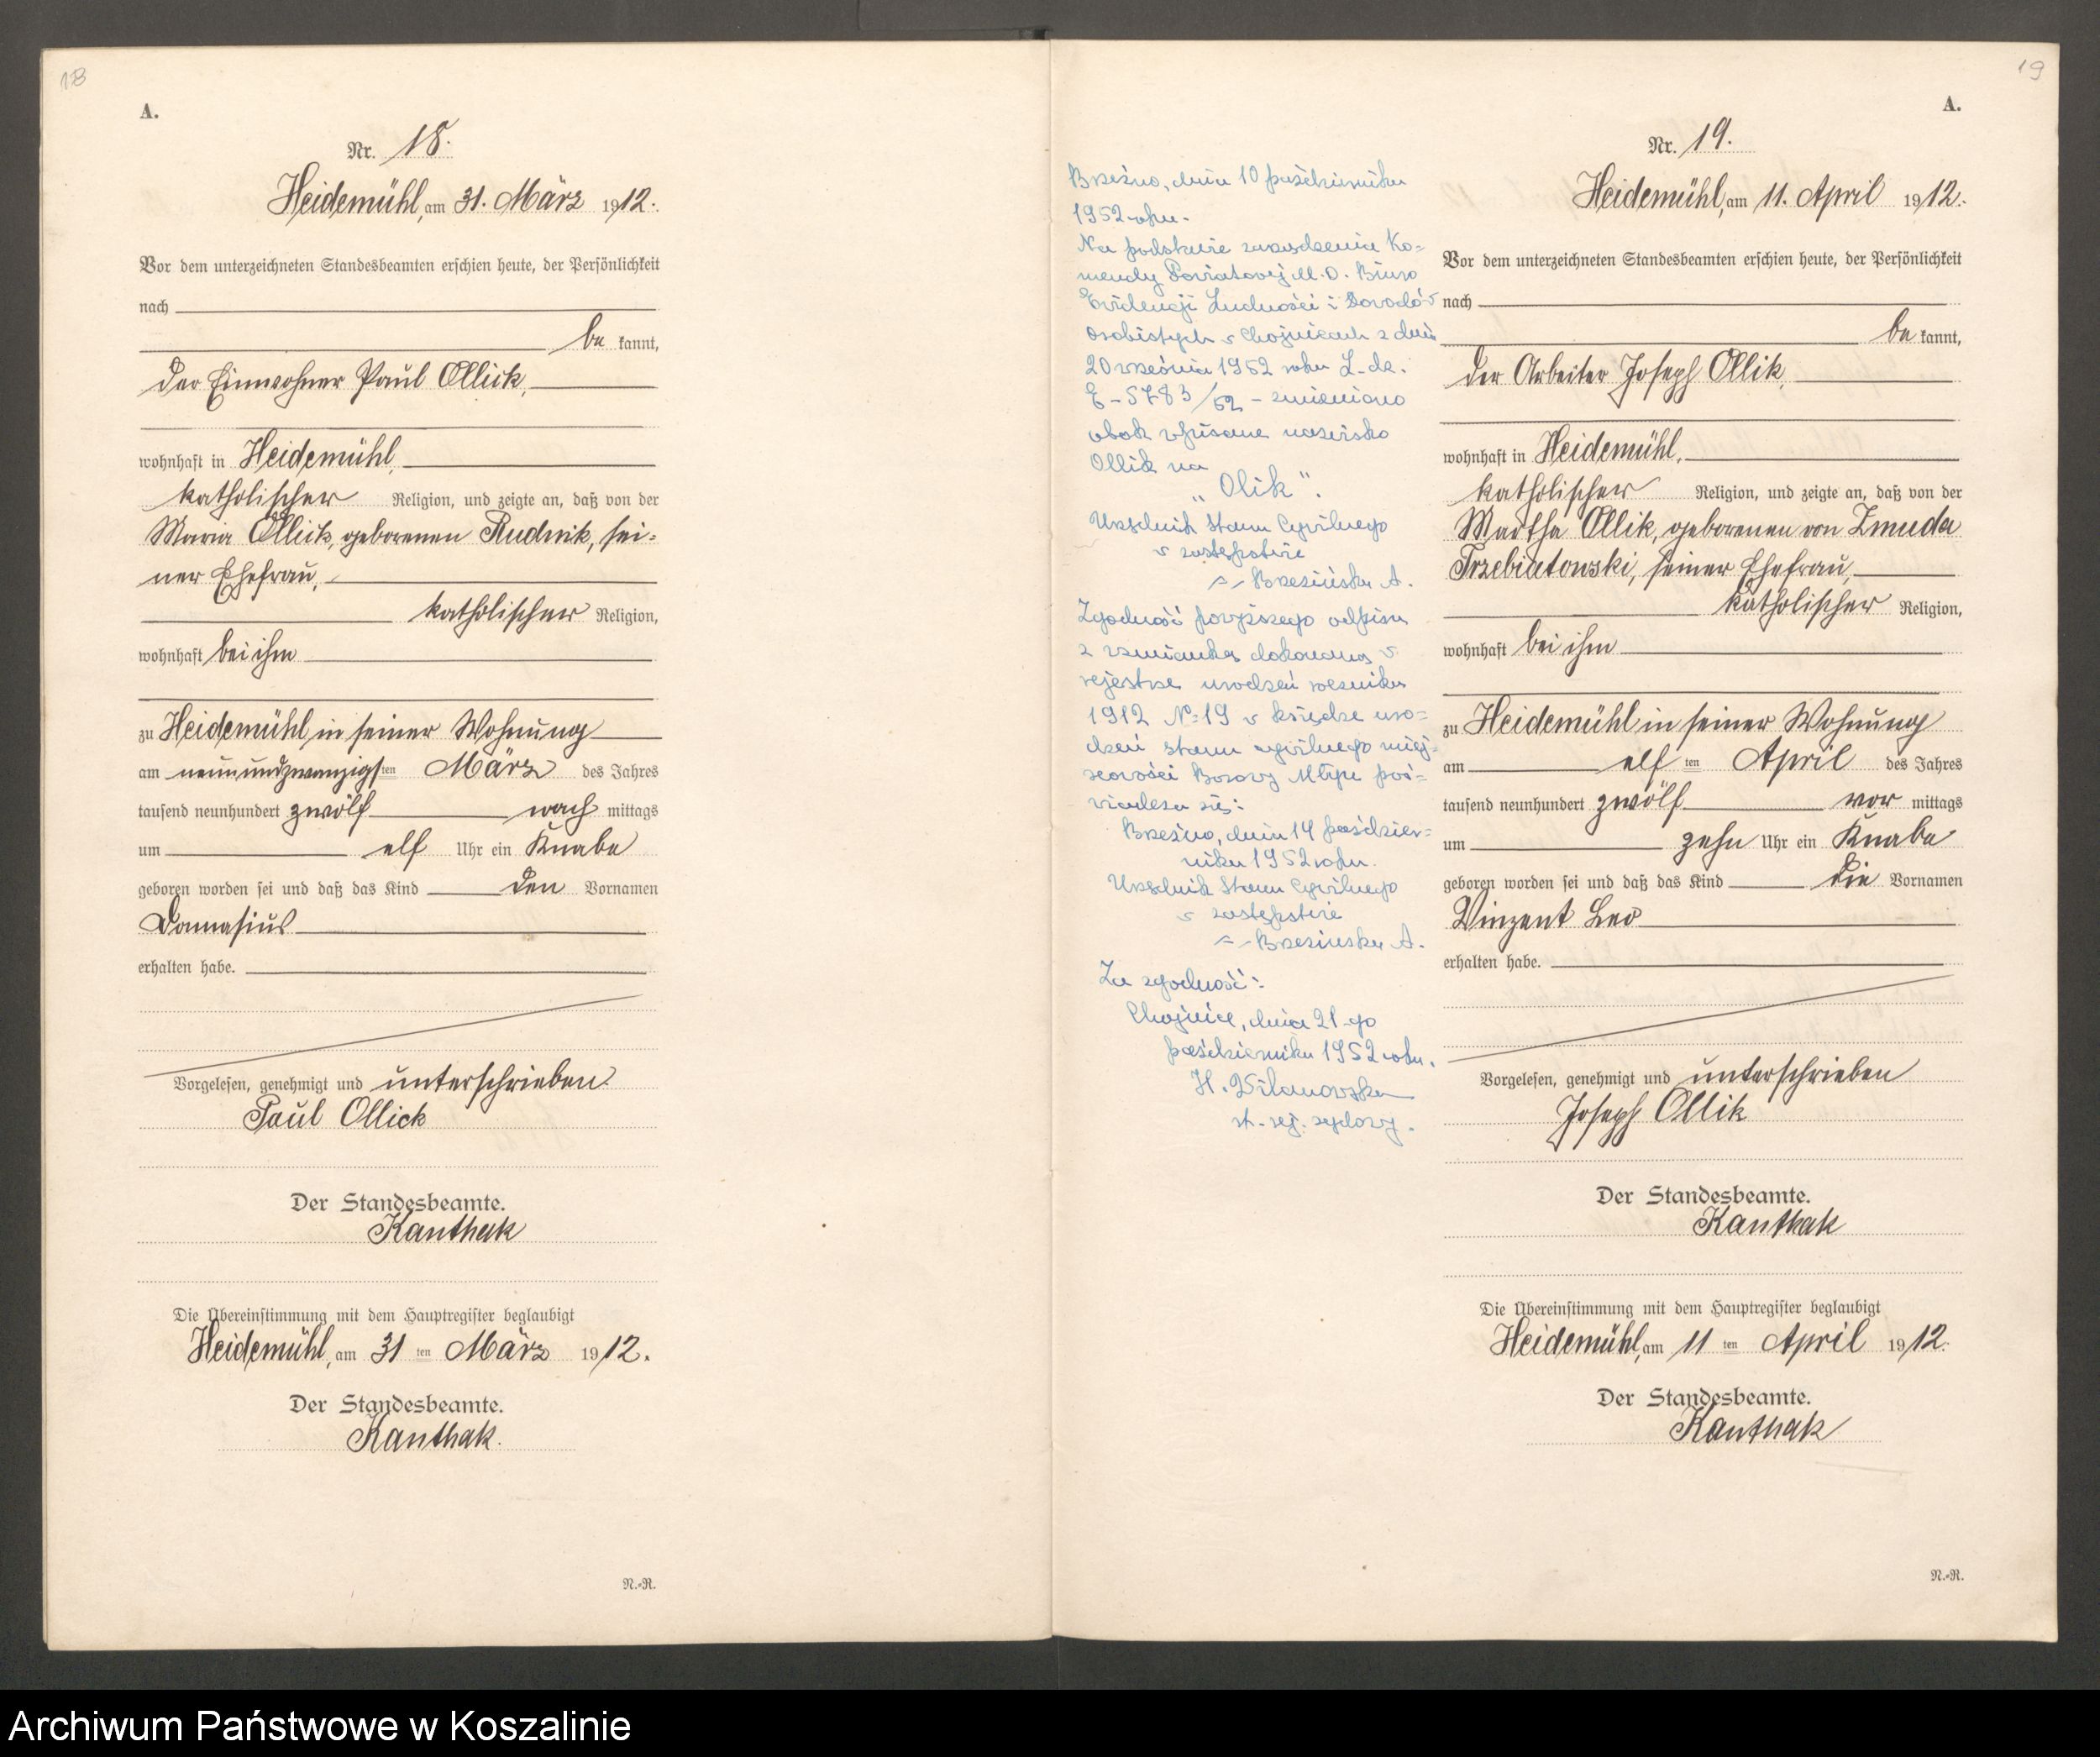 18
A.
Nr. 18.
Heidemühl, am 31. März 1912.
Vor dem unterzeichneten Standesbeamten erschien heute, der Persönlichkeit
nach
be kannt,
der Einwohner Paul Ollick,
wohnhaft in Heidemühl,
katholischer Religion, und zeigte an, daß von der
Maria Ollick, geborenen Rudnik, sei-
ner Ehefrau,
katholischer Religion,
wohnhaft bei ihm
zu Heidemühl in seiner Wohnung
am neunundzwanzigsten März des Jahres
tausend neunhundert zwölf nach mittags
um elf Uhr ein Knabe
geboren worden sei und daß das Kind den Vornamen
Damasius
erhalten habe.
Vorgelesen, genehmigt und unterschrieben.
Paul Ollick
Der Standesbeamte.
Kanthak
Die Übereinstimmung mit dem Hauptregister beglaubigt
Heidemühl, am 31 ten März 1912.
Der Standesbeamte.
Kanthak.
N.-R.
Brzeźno, dnia 10 października
1952 roku.
Na podstawie zarządzenia Ko-
mendy Powiatowej M.O. Biuro
Ewidencji Ludności i Dowodów
Osobistych w Chojnicach z dnia
20 września 1952 roku L. dz.
E-5783/52 - zmieniono
obok wpisane nazwisko
Ollik na
"Olik".
Urzędnik Stanu Cywilnego
w zastępstwie
Brzezińska A.
Zgodność powyższego odpisu
z wzmianką dokonaną w
rejestrze urodzeń rocznika
1912 Nr 19 w księdze uro-
dzeń stanu cywilnego miej-
scowości Borowy Młyn poś-
wiadcza się:
Brzeźno, dnia 14 paździer-
nika 1952 roku.
Urzędnik Stanu Cywilnego
w zastępstwie
Brzezińska A.
Za zgodność:
Chojnice, dnia 21-go
października 1952 roku.
H. Wilanowska
st. rej. sądowy.
19
A.
Nr. 19.
Heidemühl, am 11. April 1912.
Vor dem unterzeichneten Standesbeamten erschien heute, der Persönlichkeit
nach
be kannt,
der Arbeiter Joseph Ollik,
wohnhaft in Heidemühl,
katholischer Religion, und zeigte an, daß von der
Martha Ollik, geborenen von Zmuda
Trzebiatowski, seiner Ehefrau,
katholischer Religion,
wohnhaft bei ihm
zu Heidemühl in seiner Wohnung
am elf ten April des Jahres
tausend neunhundert zwölf vor mittags
um zehn Uhr ein Knabe
geboren worden sei und daß das Kind die Vornamen
Vinzent Leo
erhalten habe.
Vorgelesen, genehmigt und unterschrieben
Joseph Ollik
Der Standesbeamte.
Kanthak
Die Übereinstimmung mit dem Hauptregister beglaubigt
Heidemühl, am 11 ten April 1912.
Der Standesbeamte.
Kanthak
N.-R.
Archiwum Państwowe w Koszalinie